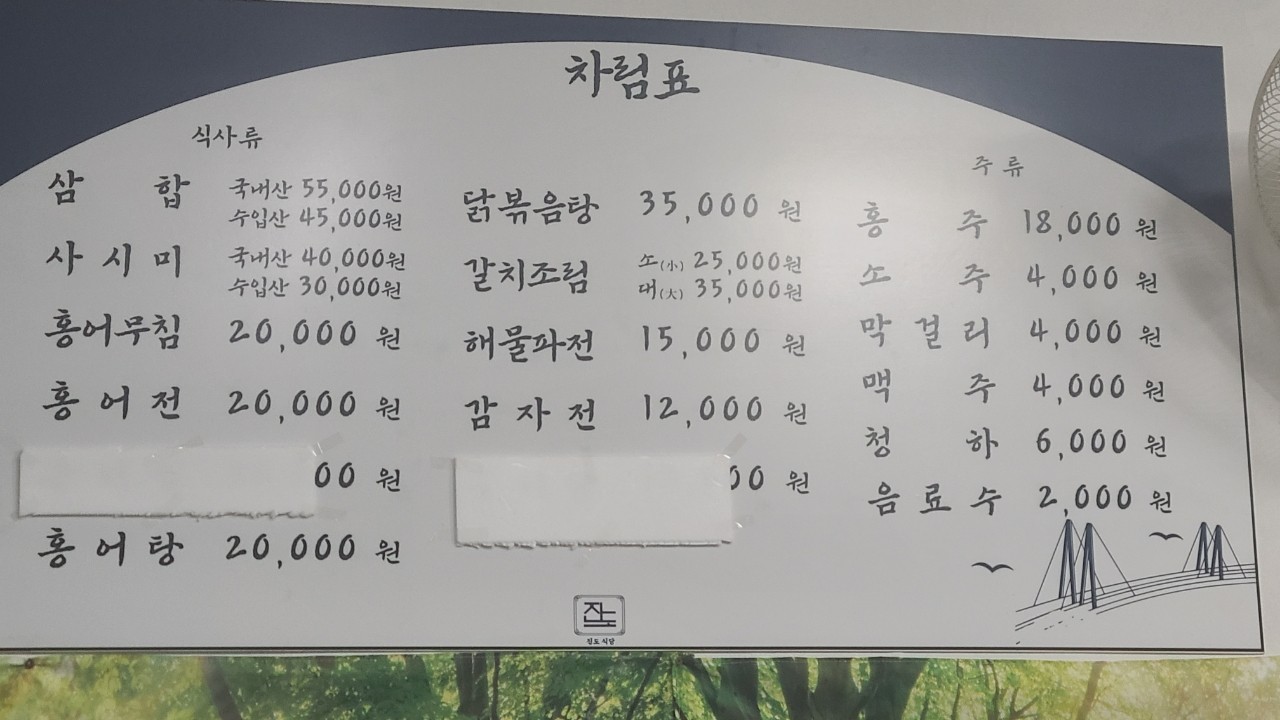 차림표
식사류
삼합 국내산 55,000원
수입산 45,000원
사시미 국내산 40,000원
수입산 30,000원
홍어무침 20,000 원
홍어전 20,000 원
00 원
홍어탕 20,000 원
닭볶음탕 35,000 원
갈치조림 소(小) 25,000원
대(大) 35,000원
해물파전 15,000 원
감자전 12,000 원
00 원
주류
홍주 18,000 원
소주 4,000 원
막걸리 4,000 원
맥주 4,000 원
청하 6,000 원
음료수 2,000 원
진도
진도 식당